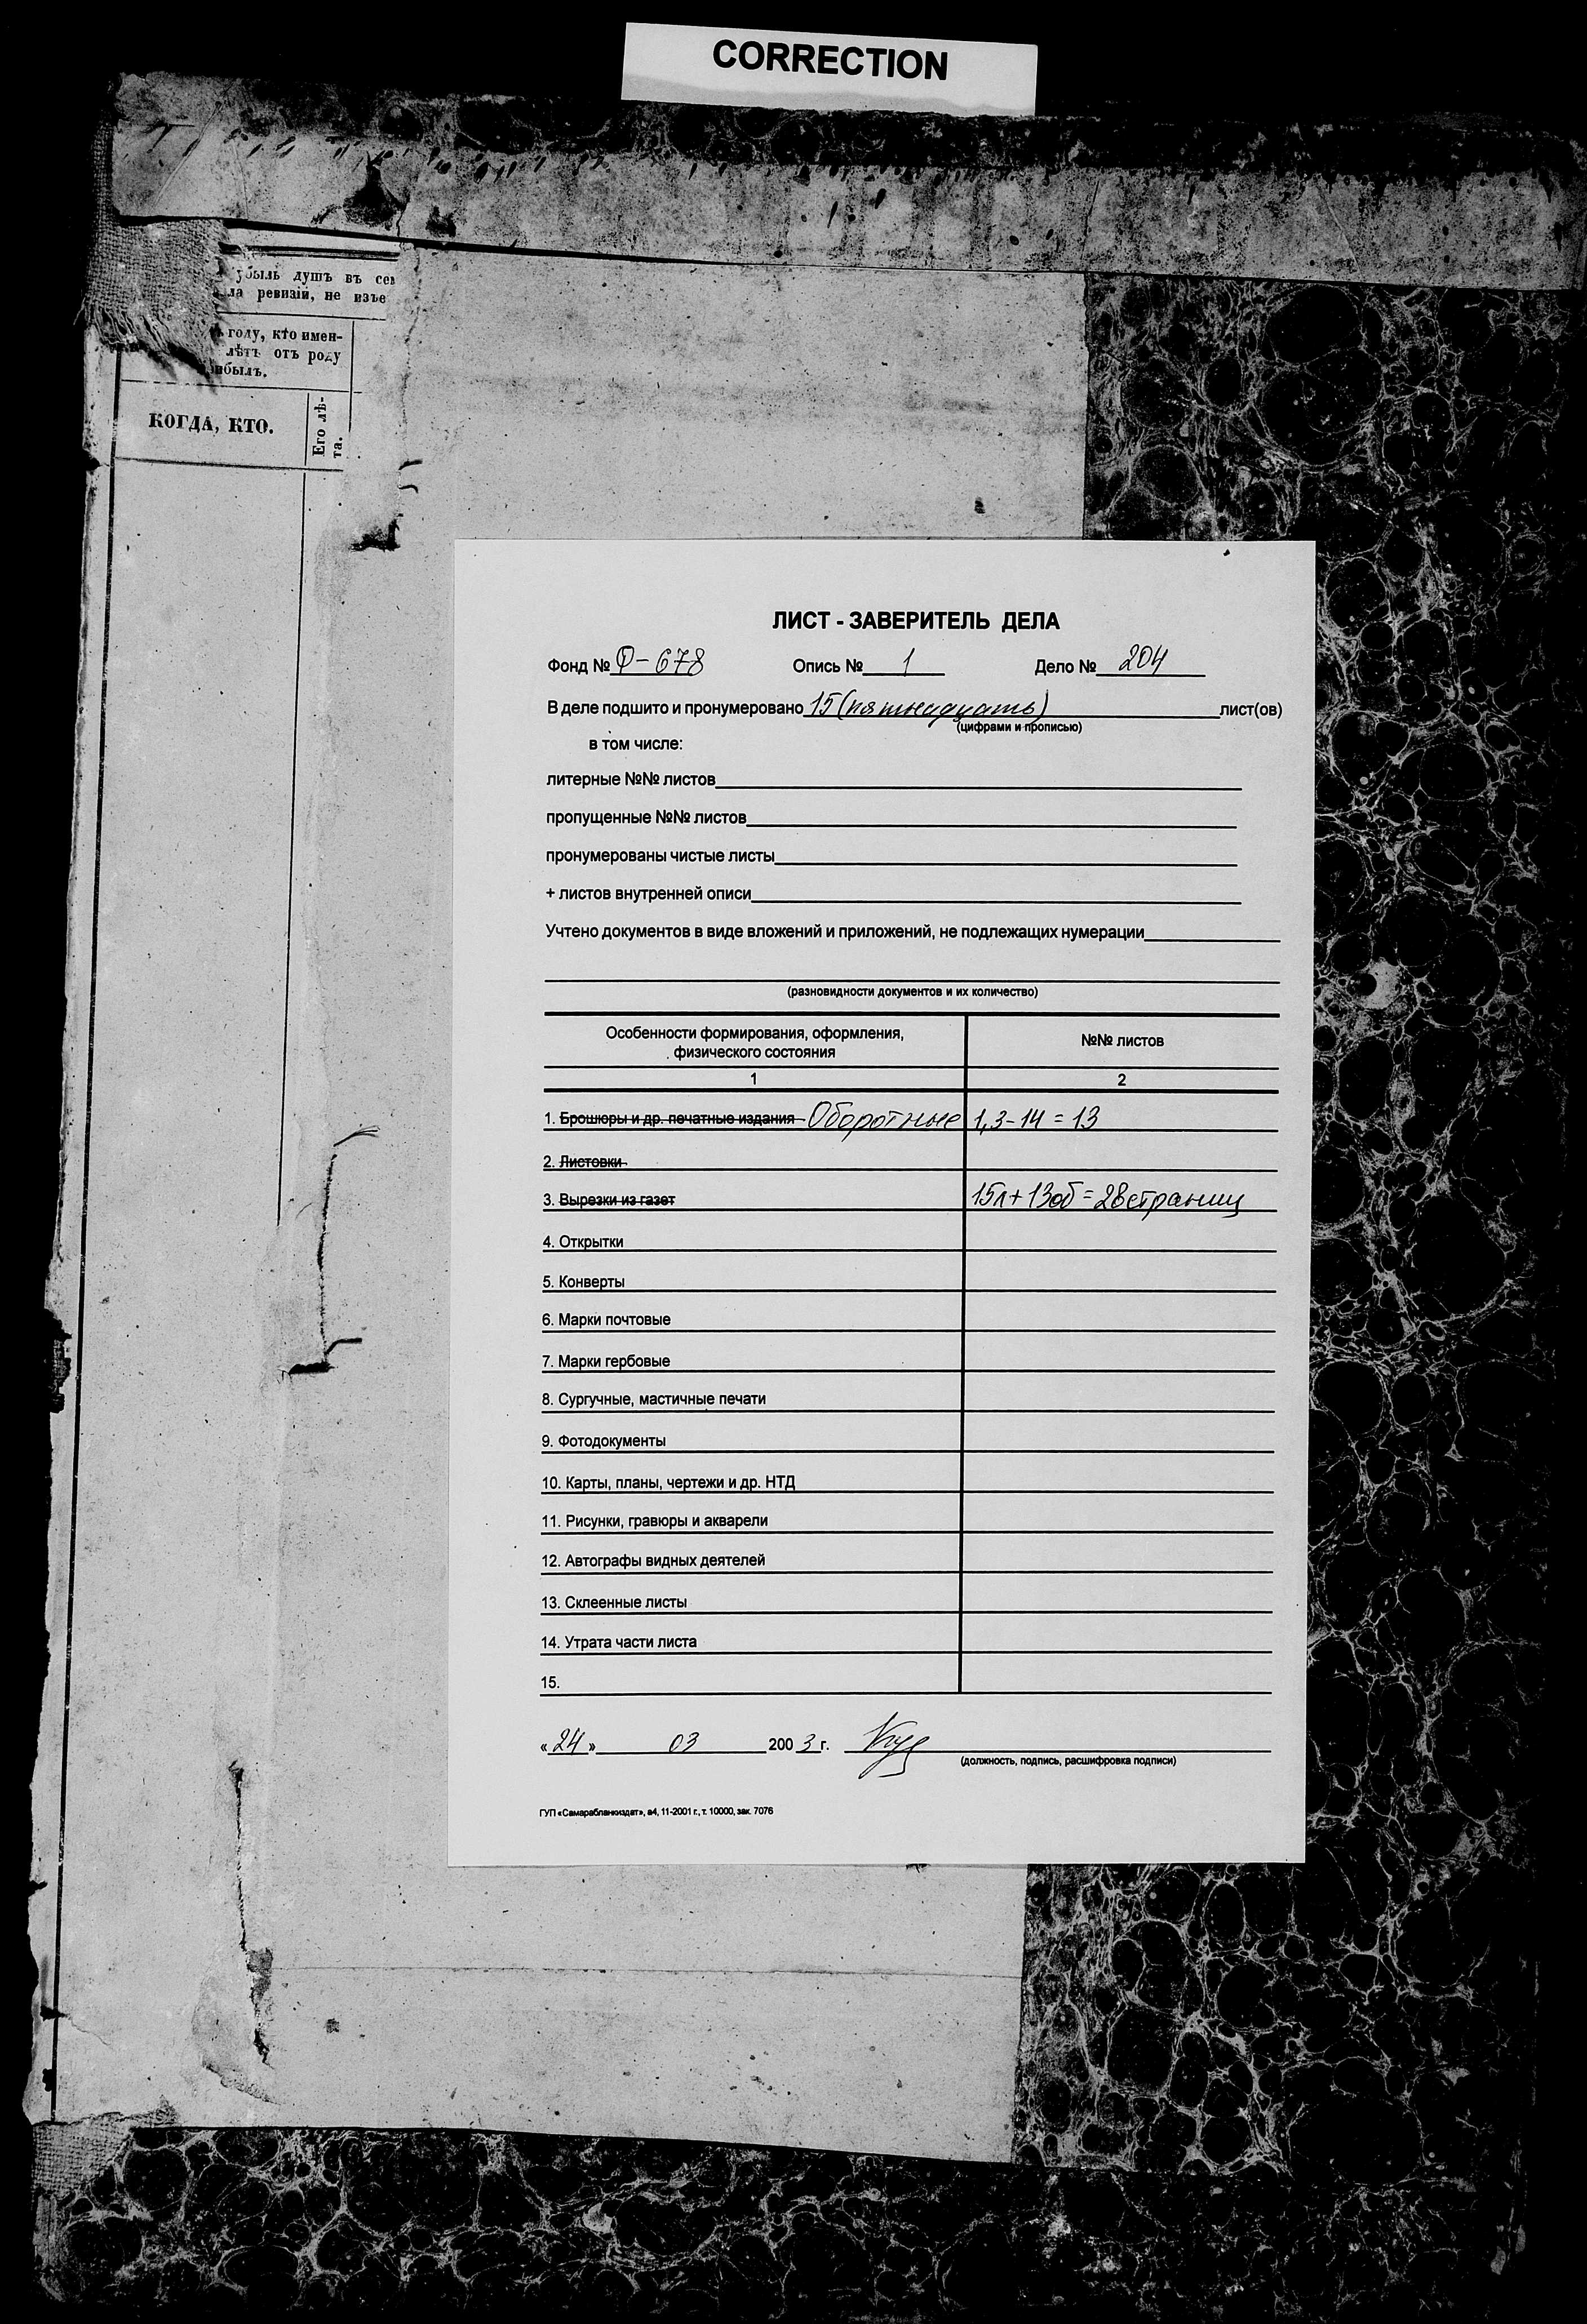 CORRECTION
убыль душъ въ сем
ла ревизіи, не изъе
году, кто имен-
лѣтъ отъ роду
ибылъ.
КОГДА, КТО.
Его лѣ-
та.
ЛИСТ - ЗАВЕРИТЕЛЬ ДЕЛА
Фонд № Ф-678 Опись № 1 Дело № 204
В деле подшито и пронумеровано 15 (пятнадцать) лист(ов)
(цифрами и прописью)
в том числе:
литерные №№ листов
пропущенные №№ листов
пронумерованы чистые листы
+ листов внутренней описи
Учтено документов в виде вложений и приложений, не подлежащих нумерации
(разновидности документов и их количество)
Особенности формирования, оформления, №№ листов
физического состояния
1 2
1. Брошюры и др. печатные издания Оборотные 1,3-14 = 13
2. Листовки
3. Вырезки из газет 15л+13об = 28 страниц
4. Открытки
5. Конверты
6. Марки почтовые
7. Марки гербовые
8. Сургучные, мастичные печати
9. Фотодокументы
10. Карты, планы, чертежи и др. НТД
11. Рисунки, гравюры и акварели
12. Автографы видных деятелей
13. Склеенные листы
14. Утрата части листа
15.
«24» 03 2003 г.
(должность, подпись, расшифровка подписи)
ГУП «Самарабланкиздат», а4, 11-2001 г., т. 10000, зак. 7076